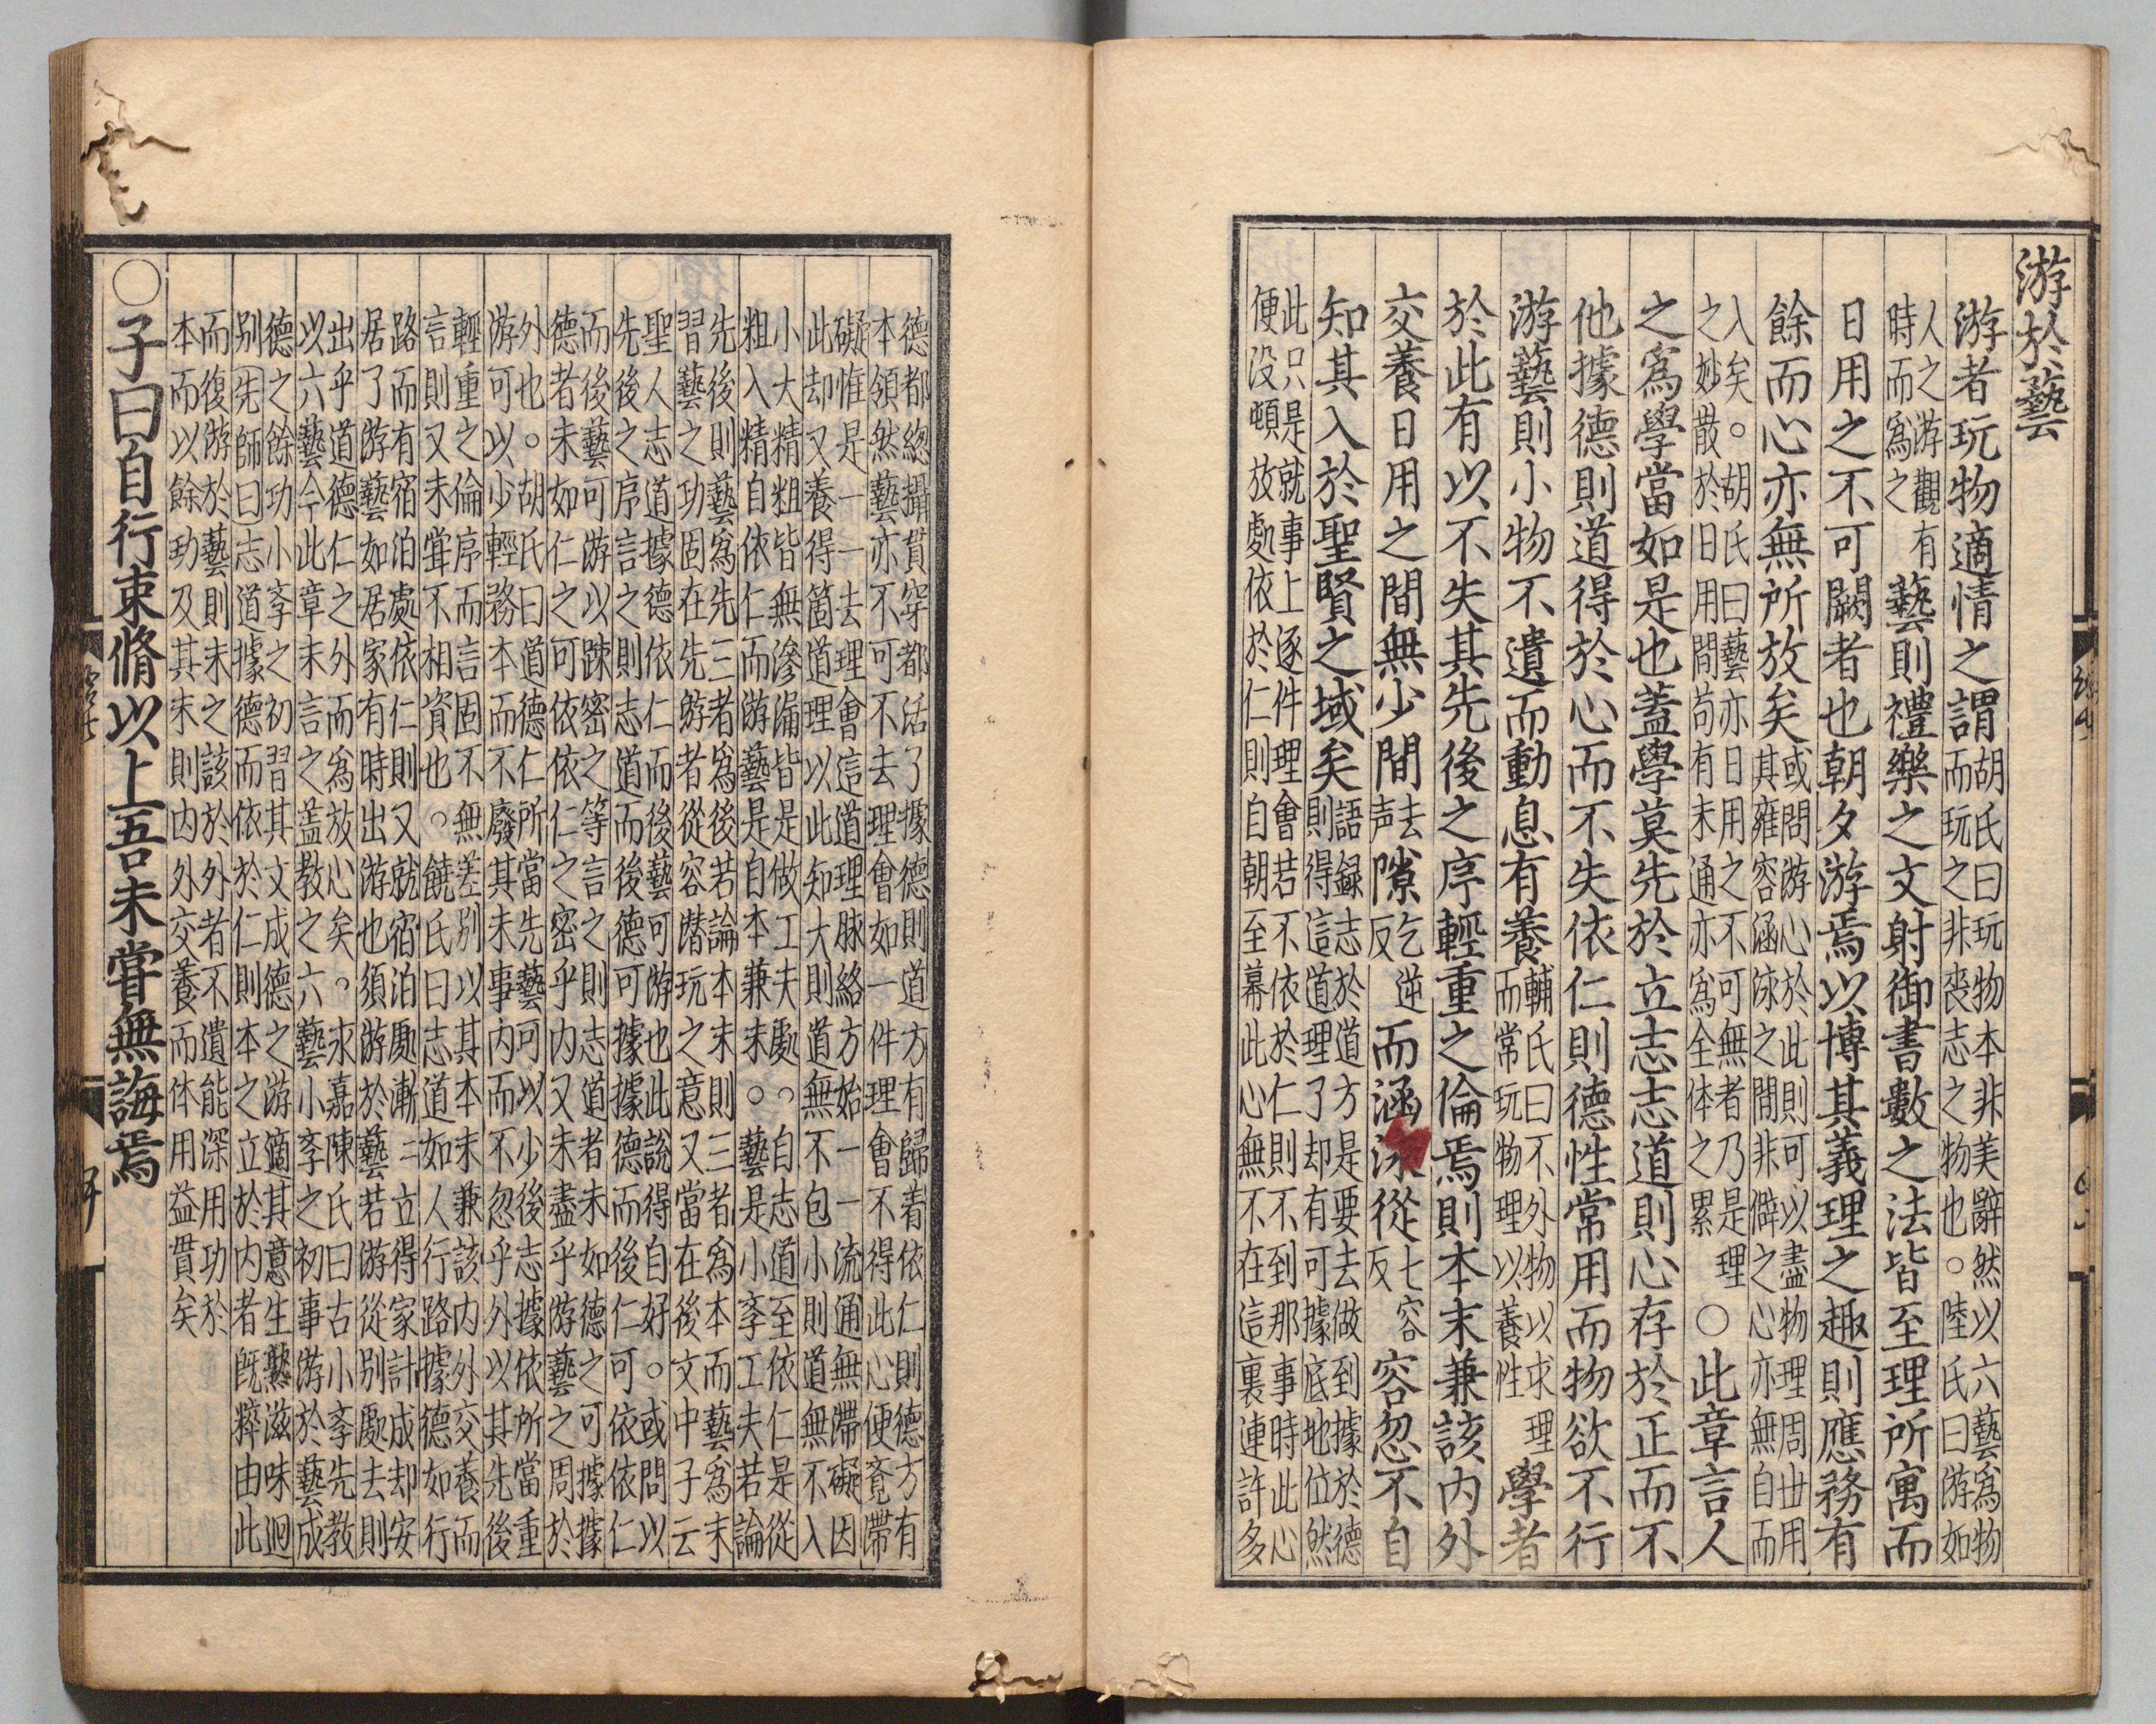 游於藝
游者玩物適情之謂胡氏曰玩物本非美辭然以六藝爲物而玩之非喪志之物也。陸氏曰游如
人之游觀有時而爲之藝則禮樂之文射御書數之法皆至理所寓而
日用之不可闕者也朝夕游焉以博其義理之趣則應務有
餘而心亦無所放矣或問游心於此則可以盡物理周世用其雍容涵泳之間非僻之心亦無自而
入矣。胡氏曰藝亦日用之不可無者乃是理之妙散於日用間苟有未通亦爲全体之累○此章言人
之爲學當如是也蓋學莫先於立志志道則心存於正而不
他據德則道得於心而不失依仁則德性常用而物欲不行
游藝則小物不遺而動息有養輔氏曰不外物以求理而常玩物理以養性學者
於此有以不失其先後之序輕重之倫焉則本末兼該内外
交養日用之間無少間去声隙乞逆反而涵泳從七容反容忽不自
知其入於聖賢之域矣語録志於道方是要去做到據於德則得這道理了却有可據底地位然
此只是就事上逐件理會若不依於仁則不到那事時此心便没頓放處依於仁則自朝至暮此心無不在這裏連許多
德都緫攝貫穿都活了據德則道方有歸着依仁則德方有
本領然藝亦不可不去理會如一件理會不得此心便覚滯
礙惟是一一去理會這道理脉絡方始一一流通無滯礙因
此却又養得箇道理以此知大則道無不包小則道無不入
小大精粗皆無滲漏皆是做工夫處。自志道至依仁是從
粗入精自依仁而游藝是自本兼末。藝是小孝工夫若論
先後則藝爲先三者爲後若論本末則三者爲本而藝爲末
習藝之功固在先游者從容潛玩之意又當在後文中子云
聖人志道據德依仁而後藝可游也此說得自好。或問以
先後之序言之則志道而後德可據據德而後仁可依依仁
而後藝可游以踈密之等言之則志道者未如德之可據據
德者未如仁之可依依仁之密乎内又未盡乎游藝之周於
外也。胡氏曰道德仁所當先藝可以少後志據依所當重
游可以少輕務本而不廢其末事内而不忽乎外以其先後
輕重之倫序而言固不無差別以其本末兼該内外交養而
言則又未甞不相資也。饒氏曰志道如人行路據德如行
路而有宿泊處依仁則又就宿泊處漸二立得家計成却安
居了游藝如居家有時出游也須游於藝若游從別處去則
出乎道德仁之外而爲放心矣。永嘉陳氏曰古小孝先教
以六藝今此章末言之蓋教之六藝小孝之初事游於藝成
德之餘功小孝之初習其文成德之游適其意生熟滋味迥
别先師曰志道據德而依於仁則本之立於内者既粹由此
而復游於藝則末之該於外者不遺能深用功於
本而以餘功及其末則内外交養而体用益貫矣
○子曰自行束脩以上吾未甞無誨焉